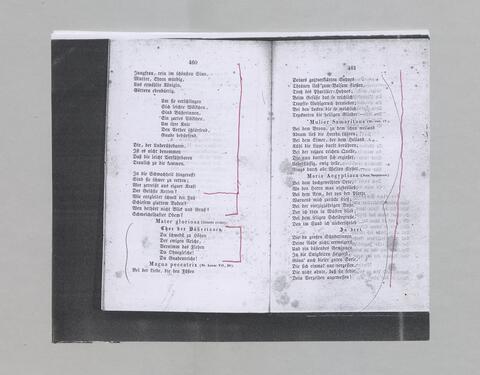 460
Jungfrau, rein im schönsten Sinn,
Mutter, Ehren würdig,
Uns erwählte Königin,
Göttern ebenbürtig.
Um sie verschlingen
Sich leichte Wölkchen,
Sind Büßerinnen,
Ein zartes Völkchen,
Um ihre Knie
Den Aether schlürfend,
Gnade bedürfend.
Dir, der Unberührbaren,
Ist es nicht benommen
Daß die leicht Verführbaren
Traulich zu dir kommen.
In die Schwachheit hingerafft
Sind sie schwer zu retten;
Wer zerreißt aus eigner Kraft
Der Gelüste Ketten?
Wie entgleitet schnell der Fuß
Schiefem glattem Boden?
Wen bethört nicht Blick und Gruß?
Schmeichelhafter Odem?
Mater gloriosa (schwebt einher).
Chor der Büßerinnen.
Du schwebst zu Höhen
Der ewigen Reiche,
Vernimm das Flehen
Du Ohnegleiche!
Du Gnadenreiche!
Magna peccatrix (St. Lucae VII, 36).
Bei der Liebe, die den Füßen
461
Deines gottverklärten Sohnes
Thränen ließ zum Balsam fließen,
Trotz des Pharisäer-Hohnes;
Beim Gefäße das so reichlich
Tropfte Wohlgeruch hernieder;
Bei den Locken die so weichlich
Trockneten die heiligen Glieder —
Mulier Samaritana
Bei dem Bronn, zu dem schon weiland
Abram ließ die Heerde führen,
Bei dem Eimer, der dem Heiland
Kühl die Lippe durft berühren;
Bei der reinen reichen Quelle,
Die nun dorther sich ergießet,
Ueberflüssig, ewig helle,
Rings durch alle Welten fließet —
Maria Aegyptiaca (Acta Sanctorum).
Bei dem hochgeweihten Orte,
Wo den Herrn man niederließ;
Bei dem Arm, der von der Pforte,
Warnend mich zurücke stieß;
Bei der vierzigjährigen Buße,
Der ich treu in Wüsten blieb;
Bei dem seligen Scheidegruße,
Den im Sand ich niederschrieb —
Zu drei.
Die du großen Sünderinnen
Deine Nähe nicht verweigerst,
Und ein büßendes Gewinnen
In die Ewigkeiten steigerst,
Gönn' auch dieser guten Seele,
Die sich einmal nur vergessen,
Die nicht ahnte, daß sie fehle,
Dein Verzeihen angemessen!